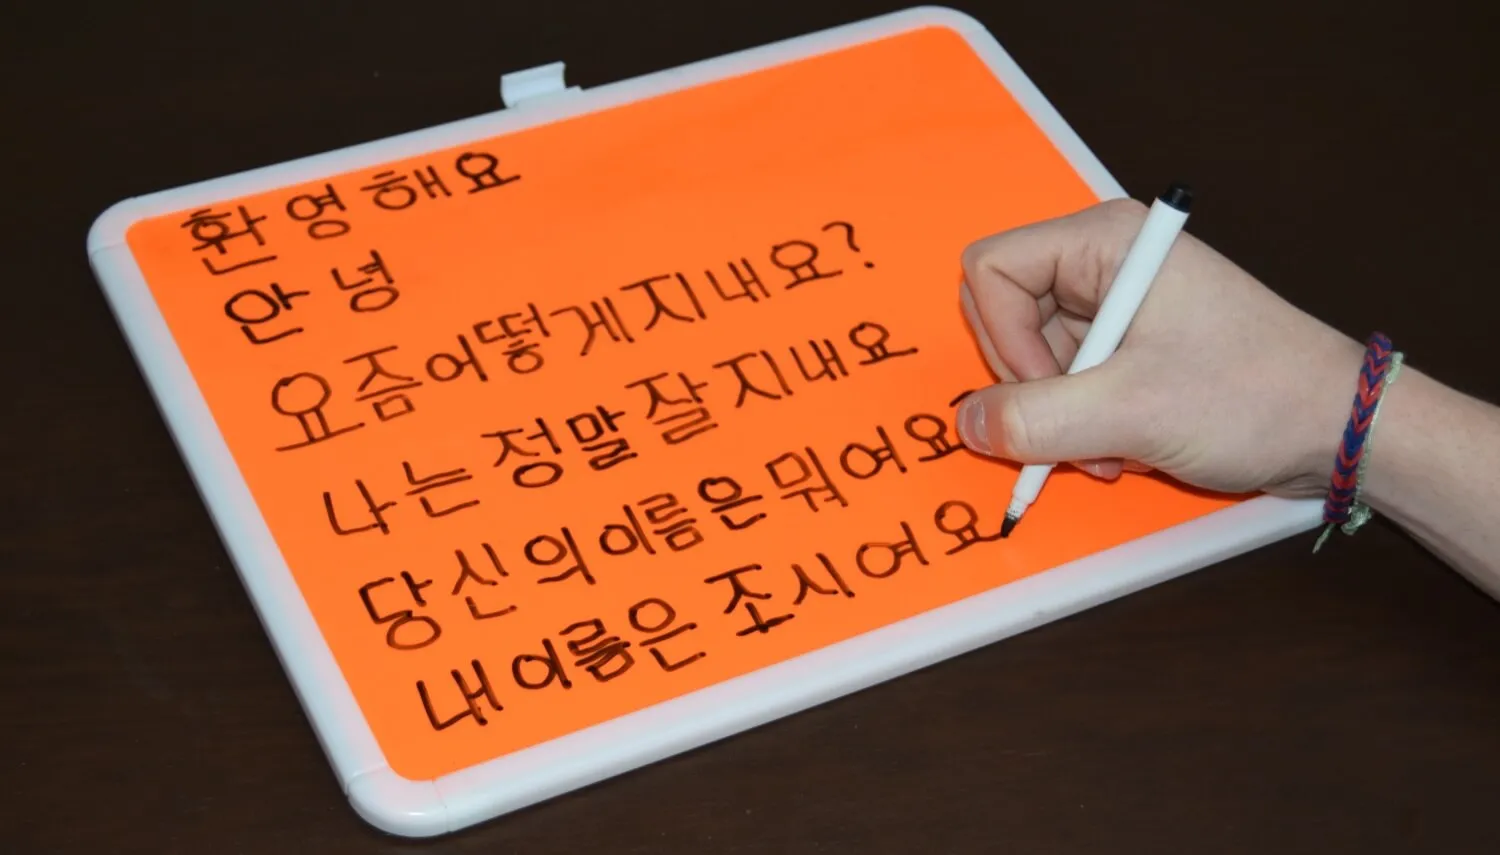 환영해요
안녕
요즘어떻게지내요?
나는정말잘지내요
당신의이름은뭐여요?
내이름은 조시여요